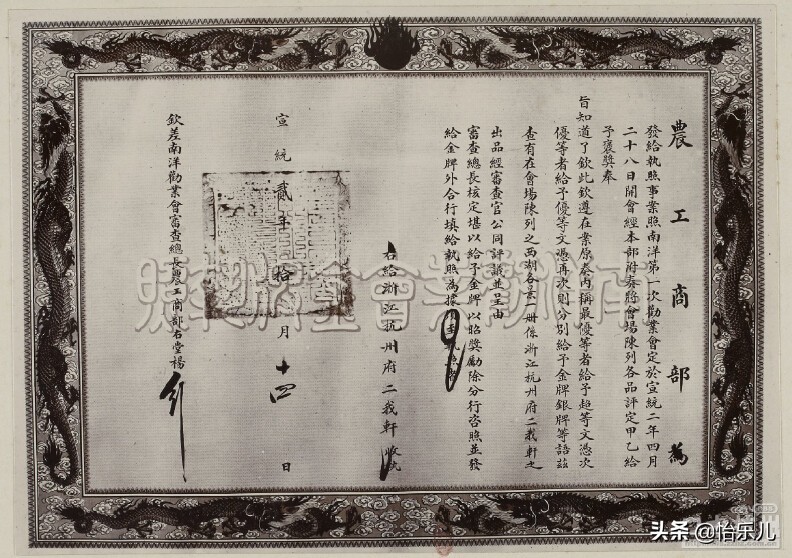 農工商部為
發給執照事業照南洋第一次勸業會定於宣統二年四月
二十八日開會經本部附奏將會場陳列各品評定甲乙給
予褒獎奉
旨知道了欽此欽遵在案原奏內稱最優等者給予超等文憑次
優等者給予優等文憑再次則分別給予金牌銀牌等語茲
查有在會場陳列之西湖各景一冊係浙江杭州府二我軒之
出品經審查官公同評議並呈由
審查總長核定堪以給予金牌以昭獎勵除分行咨照並發
給金牌外合行填給執照為據須至執照者
右給浙江杭州府二我軒收執
宣統貳年拾月十四日
欽差南洋勸業會審查總長農工商部右堂楊
頭条 @怡乐儿